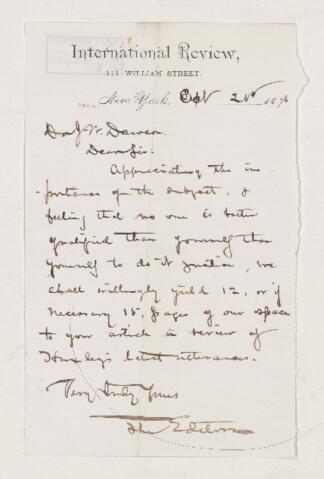 International Review,
111 WILLIAM STREET.
New York, Oct 21st 1876
Dr J. W. Dawson
Dear Sir.
Appreciating the im-
portance of the subject, &
feeling that no one is better
qualified than yourself than
yourself to do it justice, we
shall willingly yield 12, or if
necessary 15, pages of our space
to your article in review of
Huxley's latest utterances.
Very truly yours
The Editors